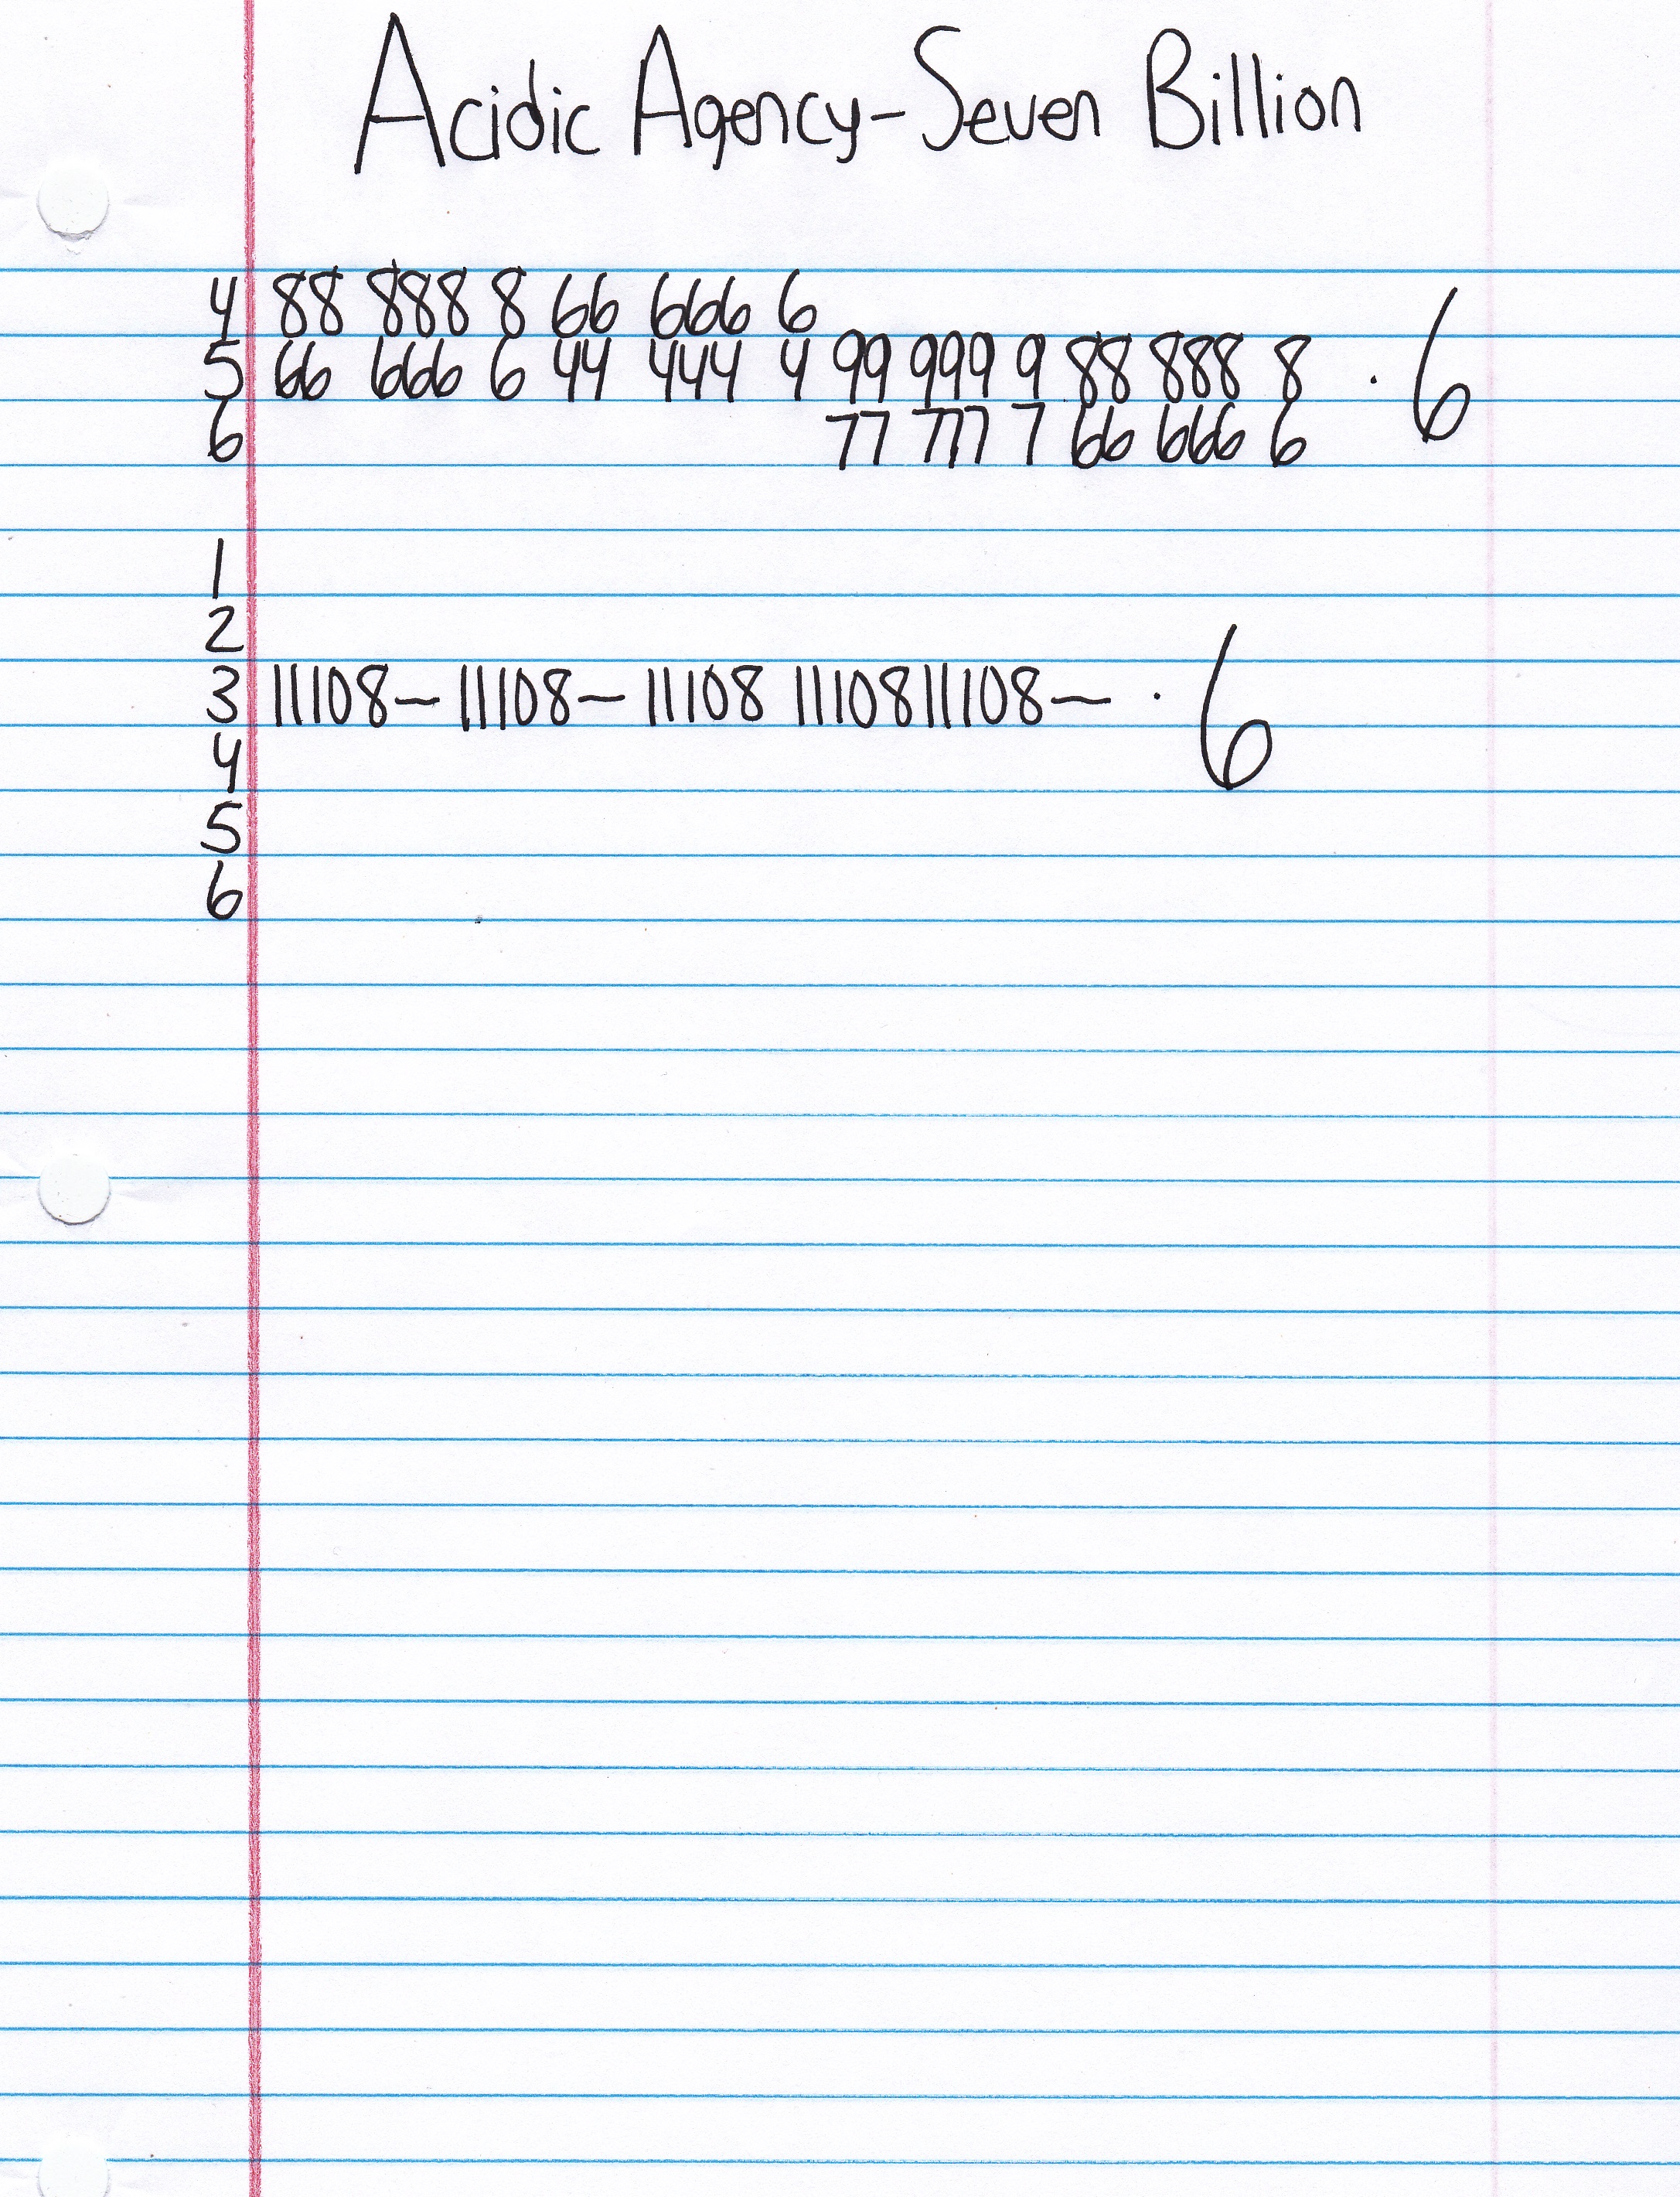 Acidic Agency-Seven Billion
4 88 888 8 66 666 6
5 66 666 6 44 444 4 99 999 9 88 888 8 . 6
6 77 777 7 66 666 6
1
2
3 11108- 11108- 11108 1110811108- . 6
4
5
6